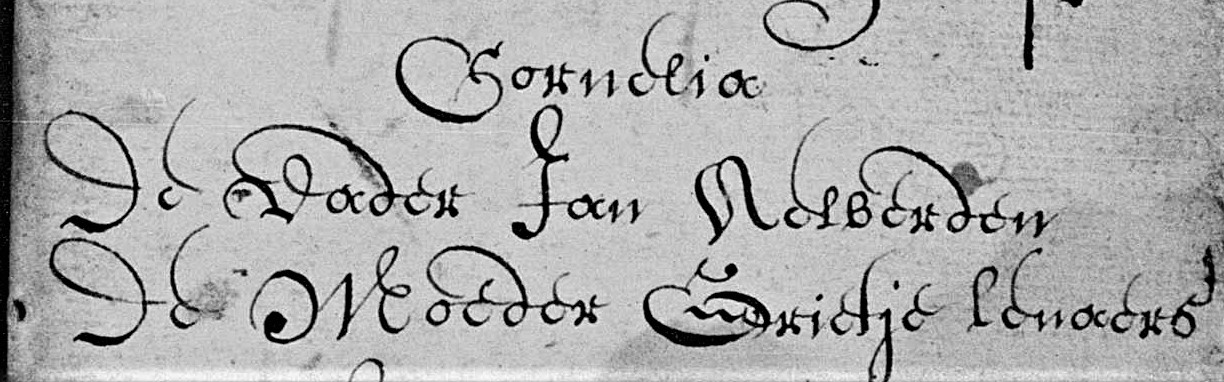 Cornelia
De Vader Jan Nelverden
De Moeder Grietje lenaers